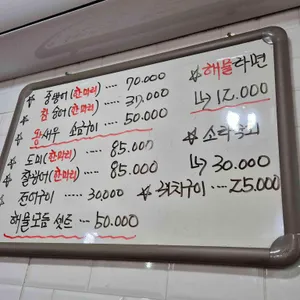 ☆ 중방어(한마리) ... 70.000
☆ 참 숭어(한마리) ... 37.000
☆ 왕새우 소금구이 ... 50.000
☆ 도미(한마리) .... 85.000
☆ 참방어(한마리) ..... 85.000
☆ 전어구이 ..... 30,000
해물모듬 셋트 ... 50.000
☆ 해물라면
↳ 12,000
☆ 소라
↳ 30.000
☆ 꽁치구이 ... 25.000